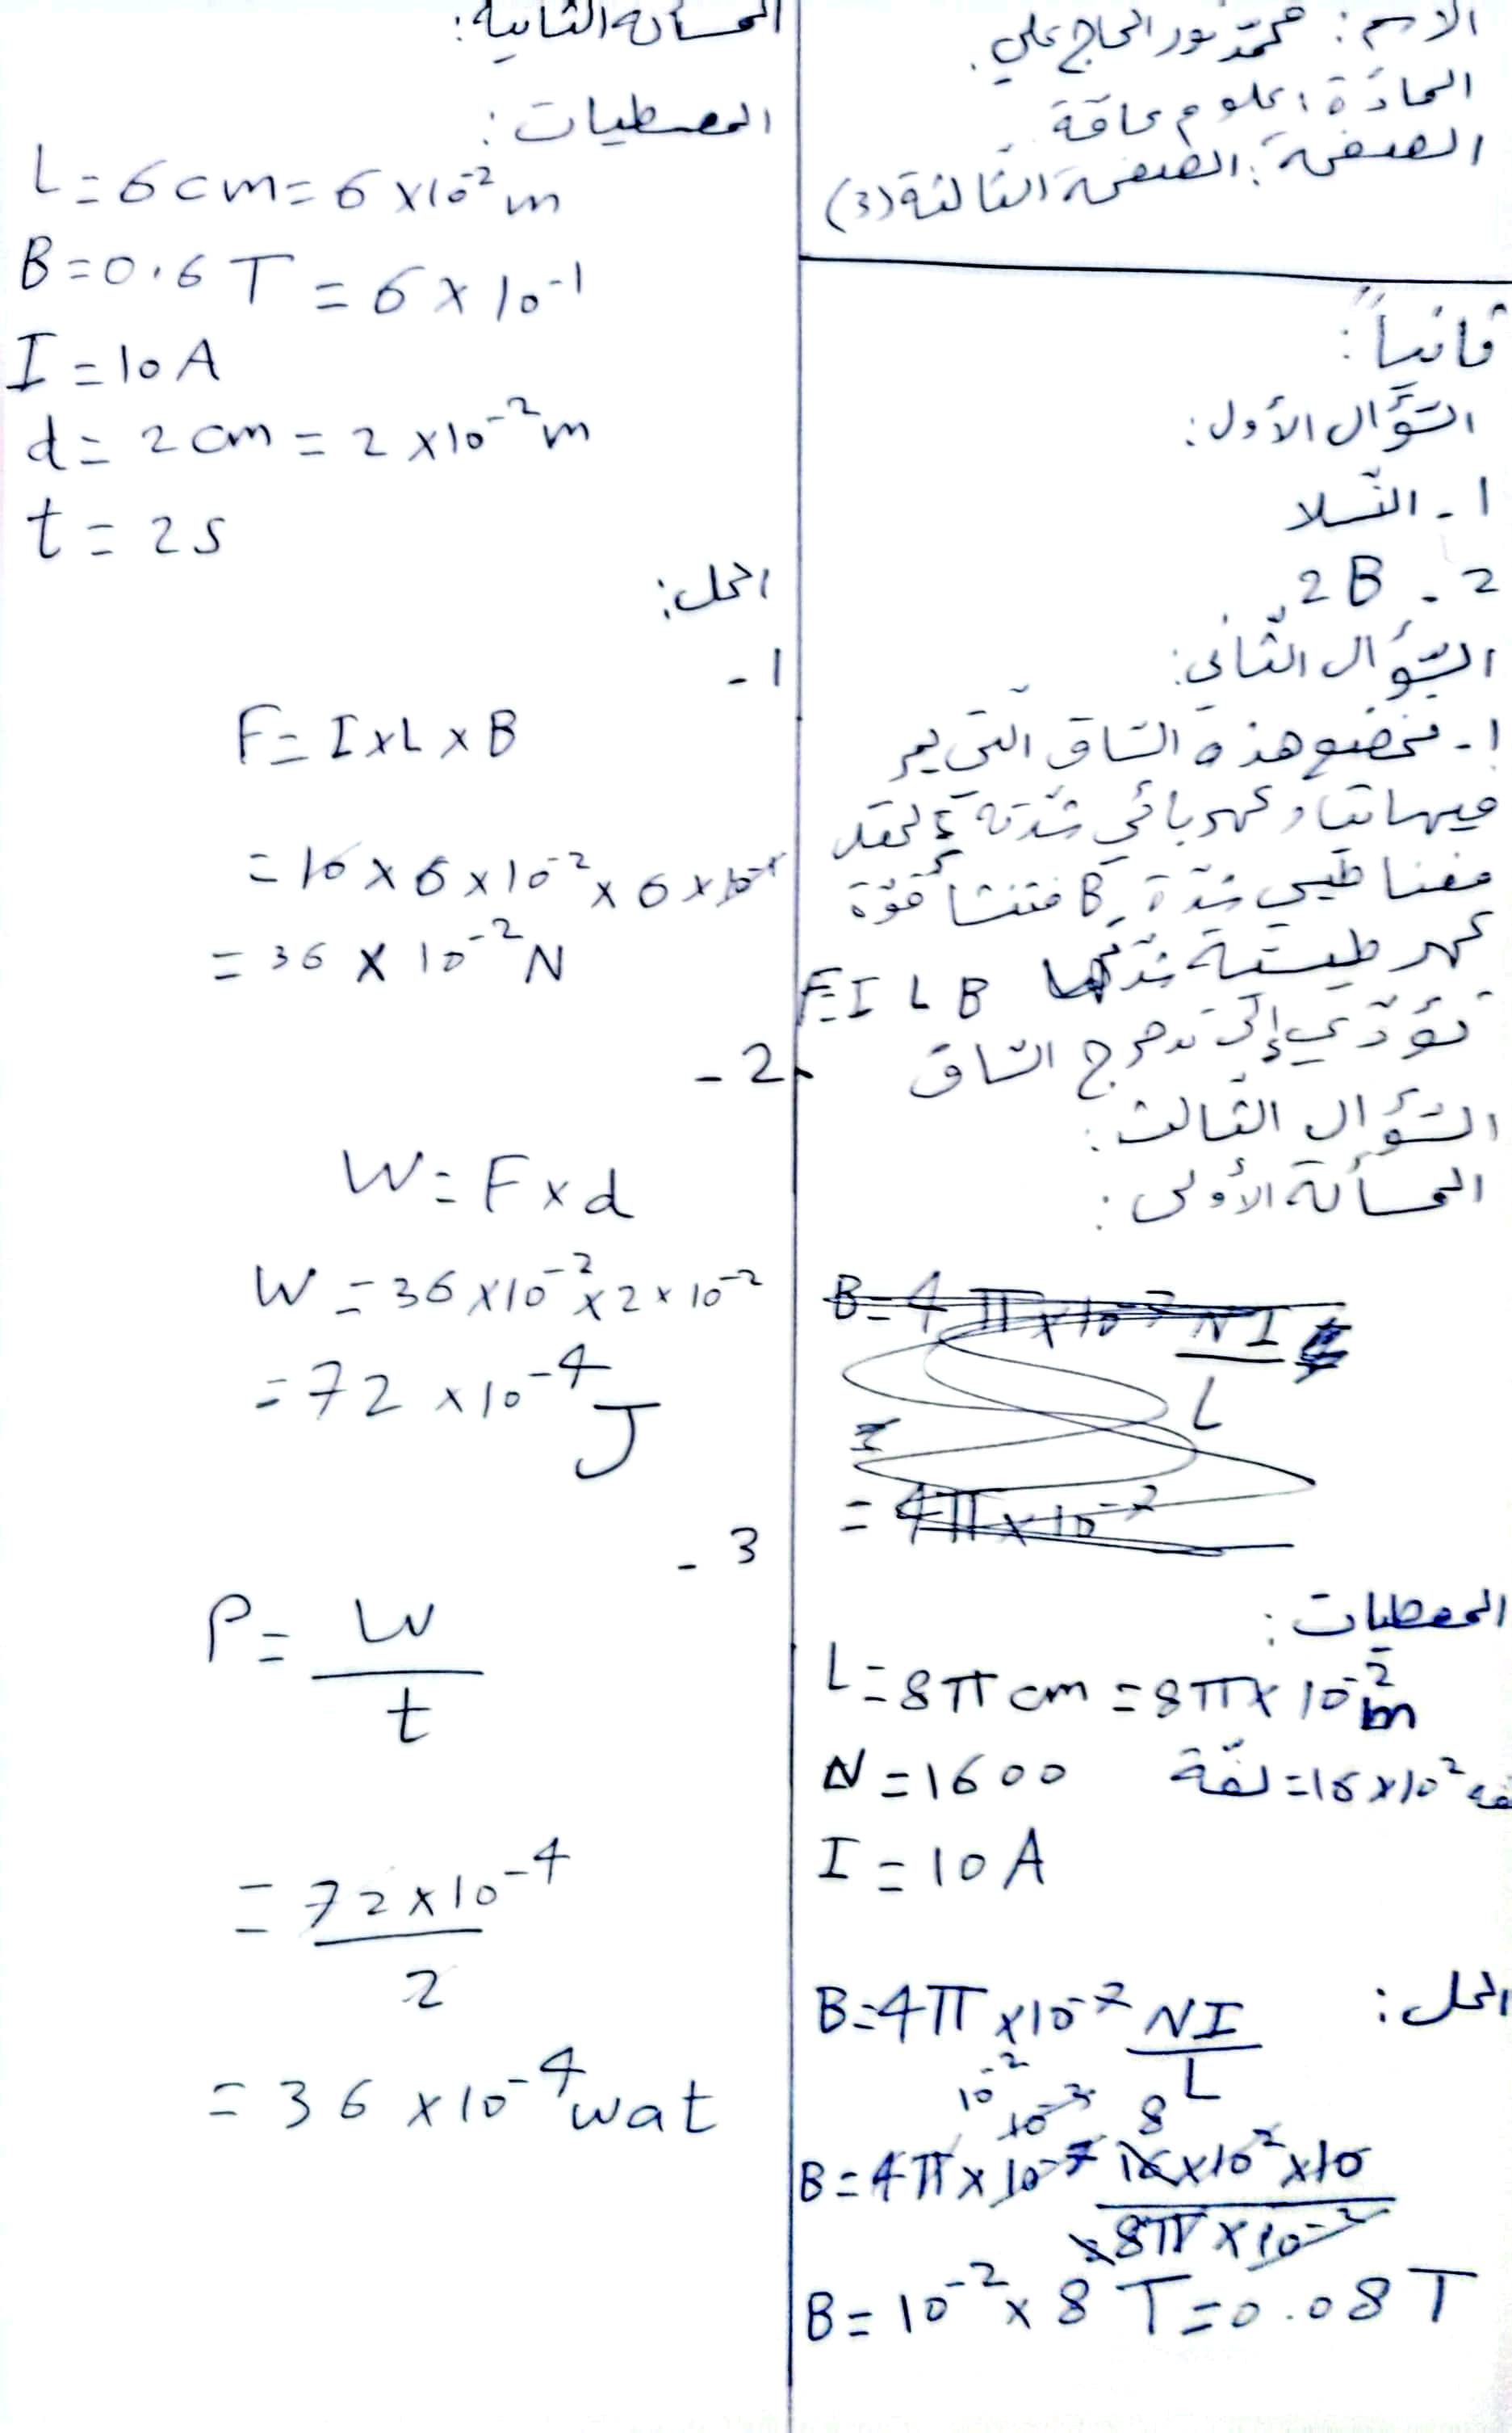 الاسم: محمّد نور الحاج علي.
المادّة: علوم عامّة
الصفحة: الصفحة الثّالثة (3)
ثانياً:
السّؤال الأوّل:
1- التّسلا
2- 2B.
السّؤال الثّاني:
1- تخضع هذه السّاق الّتي يمر
فيها تيار كهربائي شدّته I لحقل
مغناطيسي شدّته B فتنشأ قوّة
كهرطيسيّة شدّتها F=I L B
تؤدّي إلى تدحرج السّاق
السّؤال الثّالث:
المسألة الأولى:
B=4π×10⁻⁷ NI/L
= 4π×10⁻⁷
المعطيات:
L=8π cm=8π×10⁻² m
N=1600 لفّة=16×10² لفة
I=10 A
الحل:
B=4π×10⁻⁷ NI/L
10⁻² 10⁻² 8
B=4π×10⁻⁷ 16×10²×10/8π×10⁻²
B=10⁻²×8 T=0.08 T
المسألة الثانية:
المعطيات:
L=6cm=6×10⁻²m
B=0.6 T=6×10⁻¹
I=10A
d=2cm=2×10⁻²m
t=2s
الحل:
1-
F=I×L×B
=10×6×10⁻²×6×10⁻¹
=36×10⁻²N
2-
W=F×d
W=36×10⁻²×2×10⁻²
=72×10⁻⁴ J
3-
P=W/t
=72×10⁻⁴/2
=36×10⁻⁴ wat